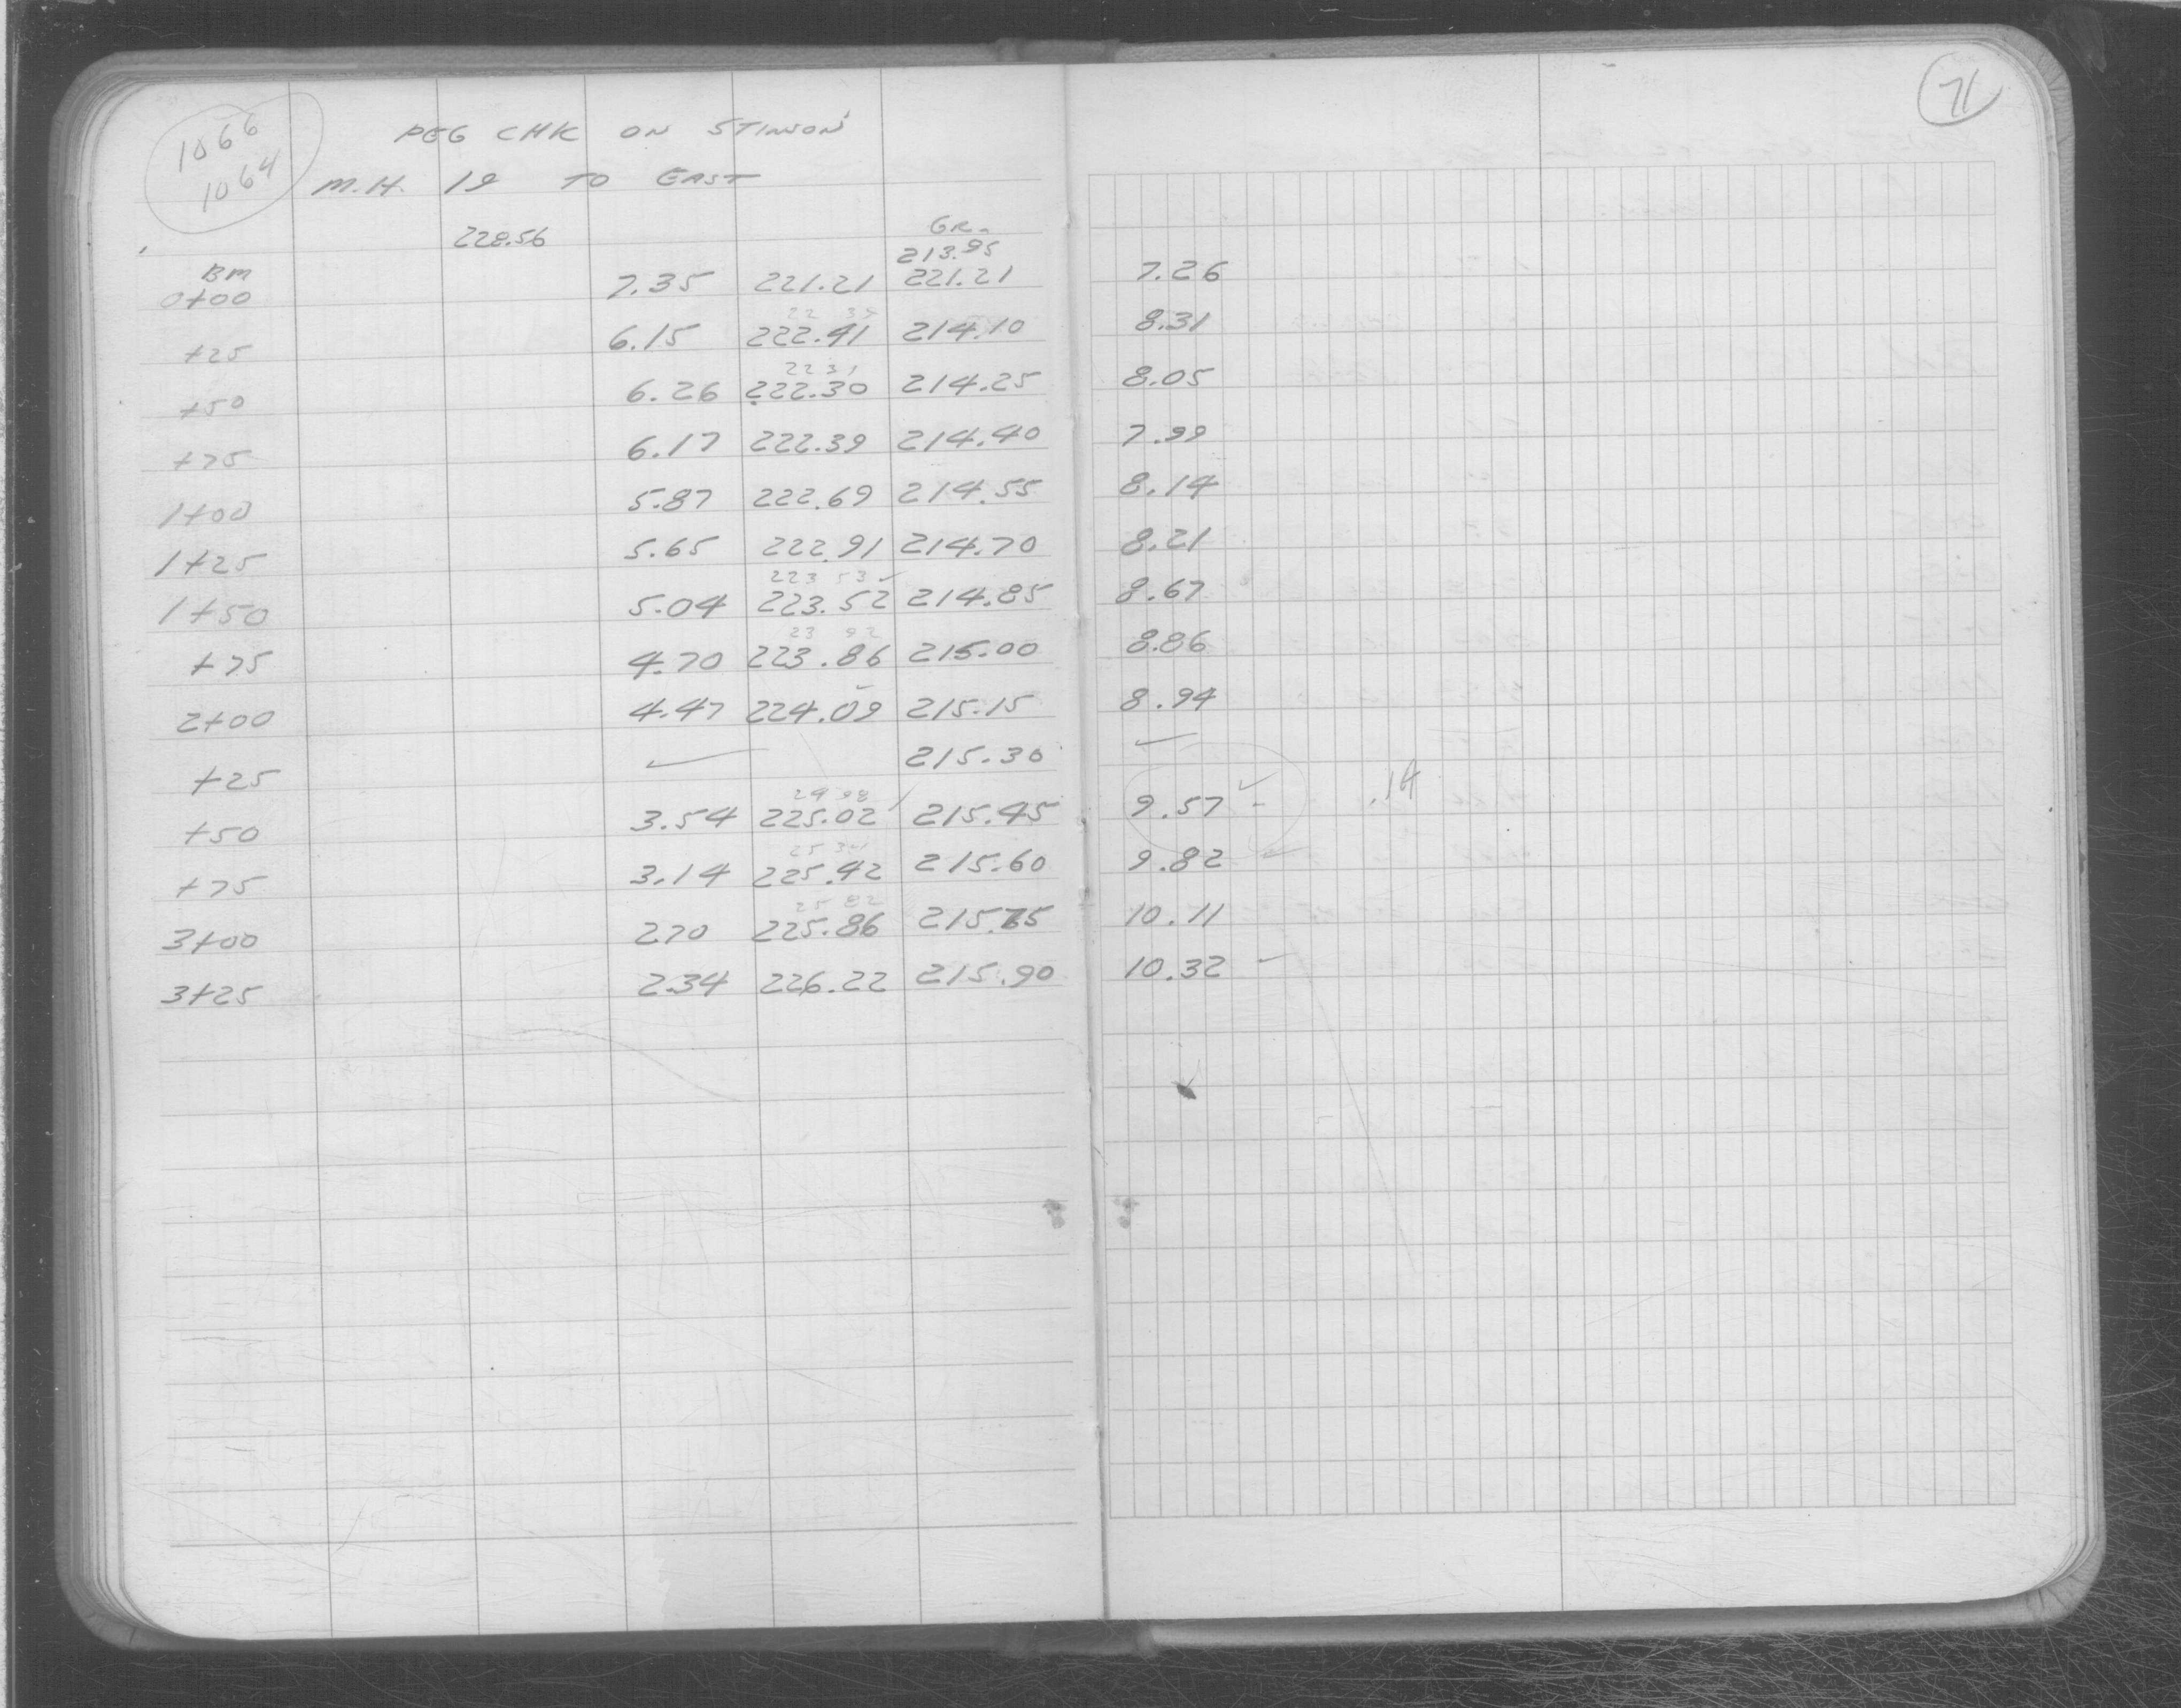 71
1066
1064
PEG CHK ON STINSON
M.H. 19 TO EAST
228.56 GR.
213.95
BM
0+00 7.35 221.21 221.21 7.26
+25 6.15 222.41 214.10 8.31
22 31
+50 6.26 222.30 214.25 8.05
+75 6.17 222.39 214.40 7.99
1+00 5.87 222.69 214.55 8.14
1+25 5.65 222.91 214.70 8.21
223 53 ✓
1+50 5.04 223.52 214.85 8.67
23 92
+75 4.70 223.86 215.00 8.86
2+00 4.47 224.09 215.15 8.94
+25 ✓ 215.30 ✓
24 98
+50 3.54 225.02 215.45 9.57 ✓ - .14
+75 3.14 225.42 215.60 9.82
25 82
3+00 2.70 225.86 215.75 10.11
3+25 2.34 226.22 215.90 10.32 -